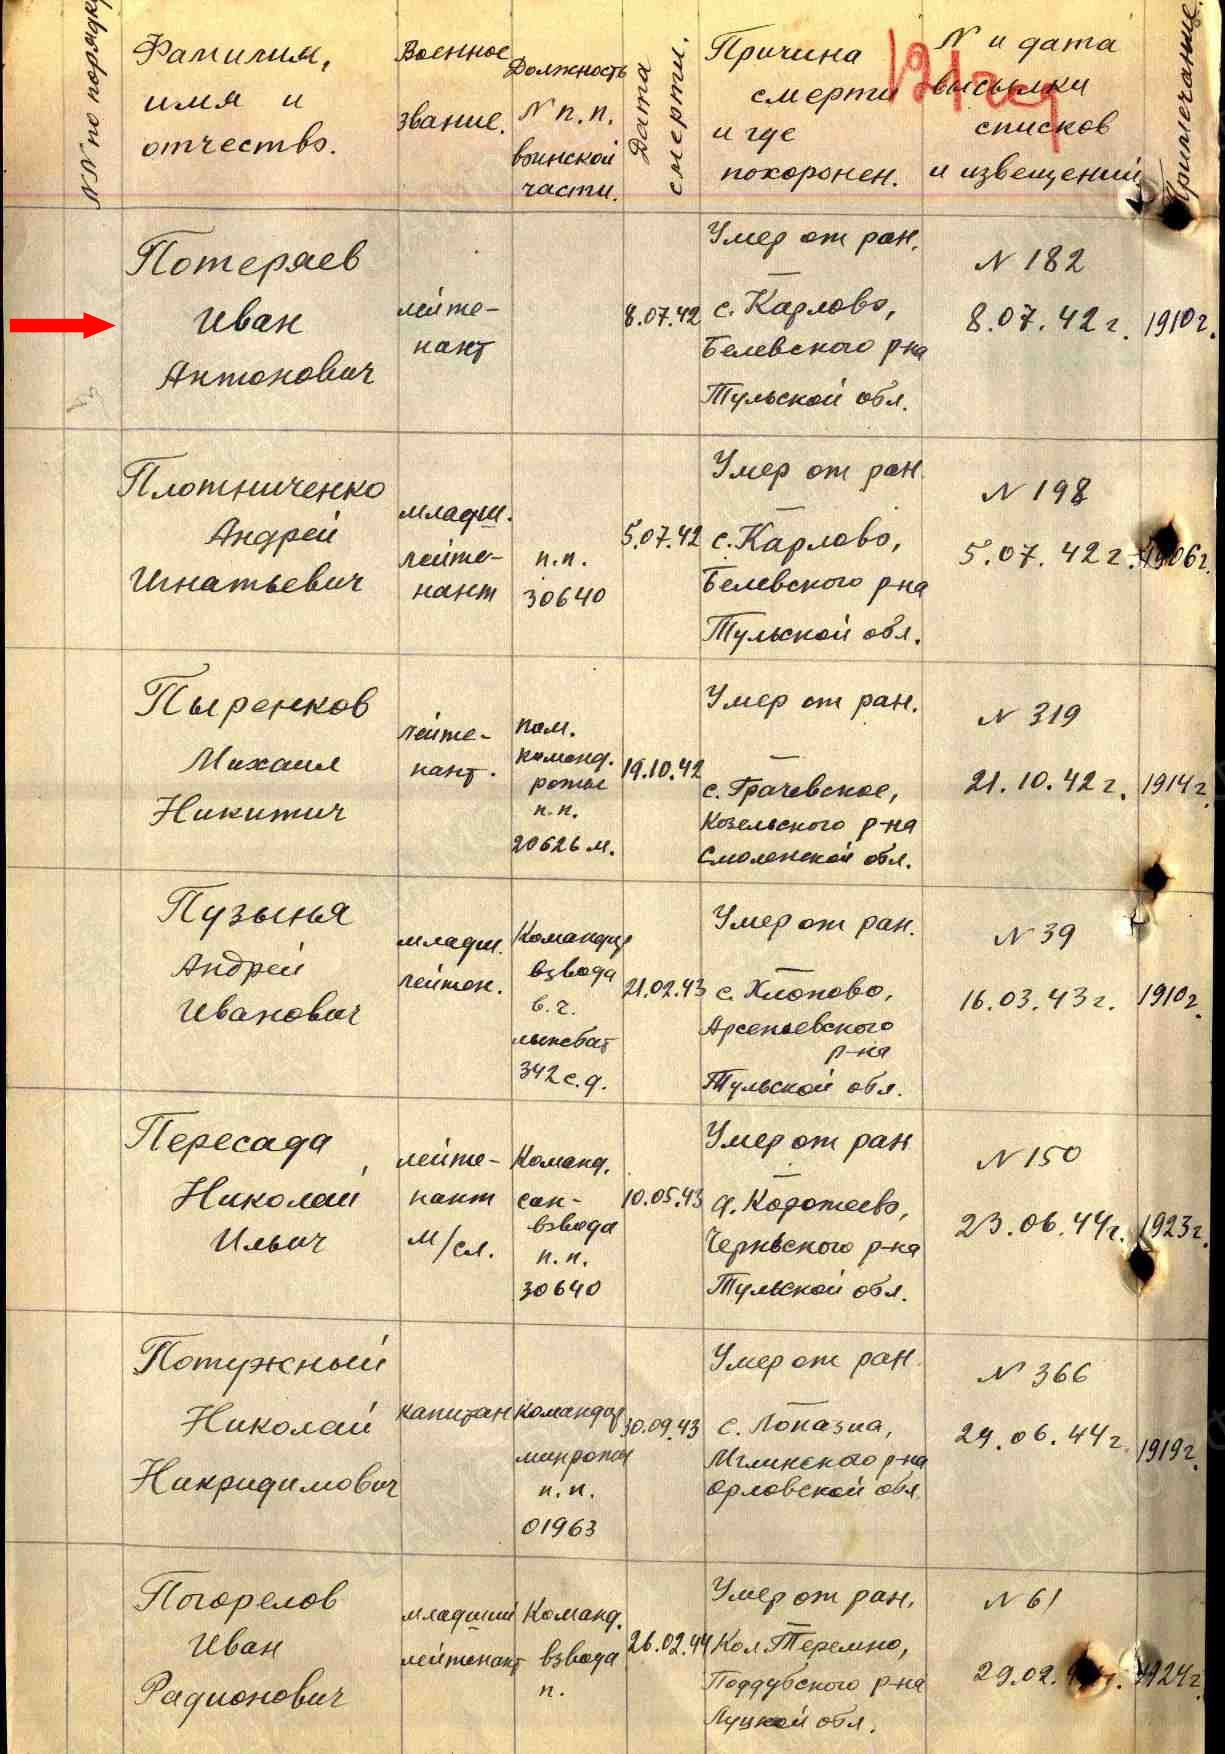 NN по порядку
Фамилия,
имя и
отчество.
Военное
звание.
Должность
N п.п.
воинской
части.
Дата
смерти.
Причина
смерти
и где
похоронен.
N и дата
высылки
списков
и извещений
Примечание.
Потеряев
Иван
Антонович
лейте-
нант
8.07.42
Умер от ран.
с. Карлово,
Белевского р-на
Тульской обл.
N 182
8.07.42 г.
1910г.
Плотниченко
Андрей
Игнатьевич
младш.
лейте-
нант
п.п.
30640
5.07.42
Умер от ран.
с. Карлово,
Белевского р-на
Тульской обл.
N 198
5.07.42 г.
1906г.
Пыренков
Михаил
Никитич
лейте-
нант.
пом.
команд.
роты
п.п.
20626 м.
19.10.42
Умер от ран.
с. Грачевское,
Козельского р-на
Смоленской обл.
N 319
21.10.42 г.
1914г.
Пузынья
Андрей
Иванович
младш.
лейтен.
Командир
взвода
в.ч.
лыжбат
342 с.д.
21.02.43
Умер от ран.
с. Хлопово,
Арсеньевского
р-на
Тульской обл.
N 39
16.03.43 г.
1910г.
Пересада
Николай
Ильич
лейте-
нант
м/сл.
Команд.
сан-
взвода
п.п.
30640
10.05.43
Умер от ран
д. Коротеево,
Чернского р-на
Тульской обл.
N 150
23.06.44г.
1923г.
Потужный
Николай
Никридимович
капитан
командир
минроты
п.п.
01963
30.09.43
Умер от ран.
с. Лопазна,
Мглинского р-на
Орловской обл.
N 366
29.06.44 г.
1919г.
Погорелов
Иван
Радионович
младший
лейтенант
Команд.
взвода
п.
26.02.44
Умер от ран.
Кол. Теремно,
Поддубского р-на
Луцкой обл.
N 61
29.02.
1924г.